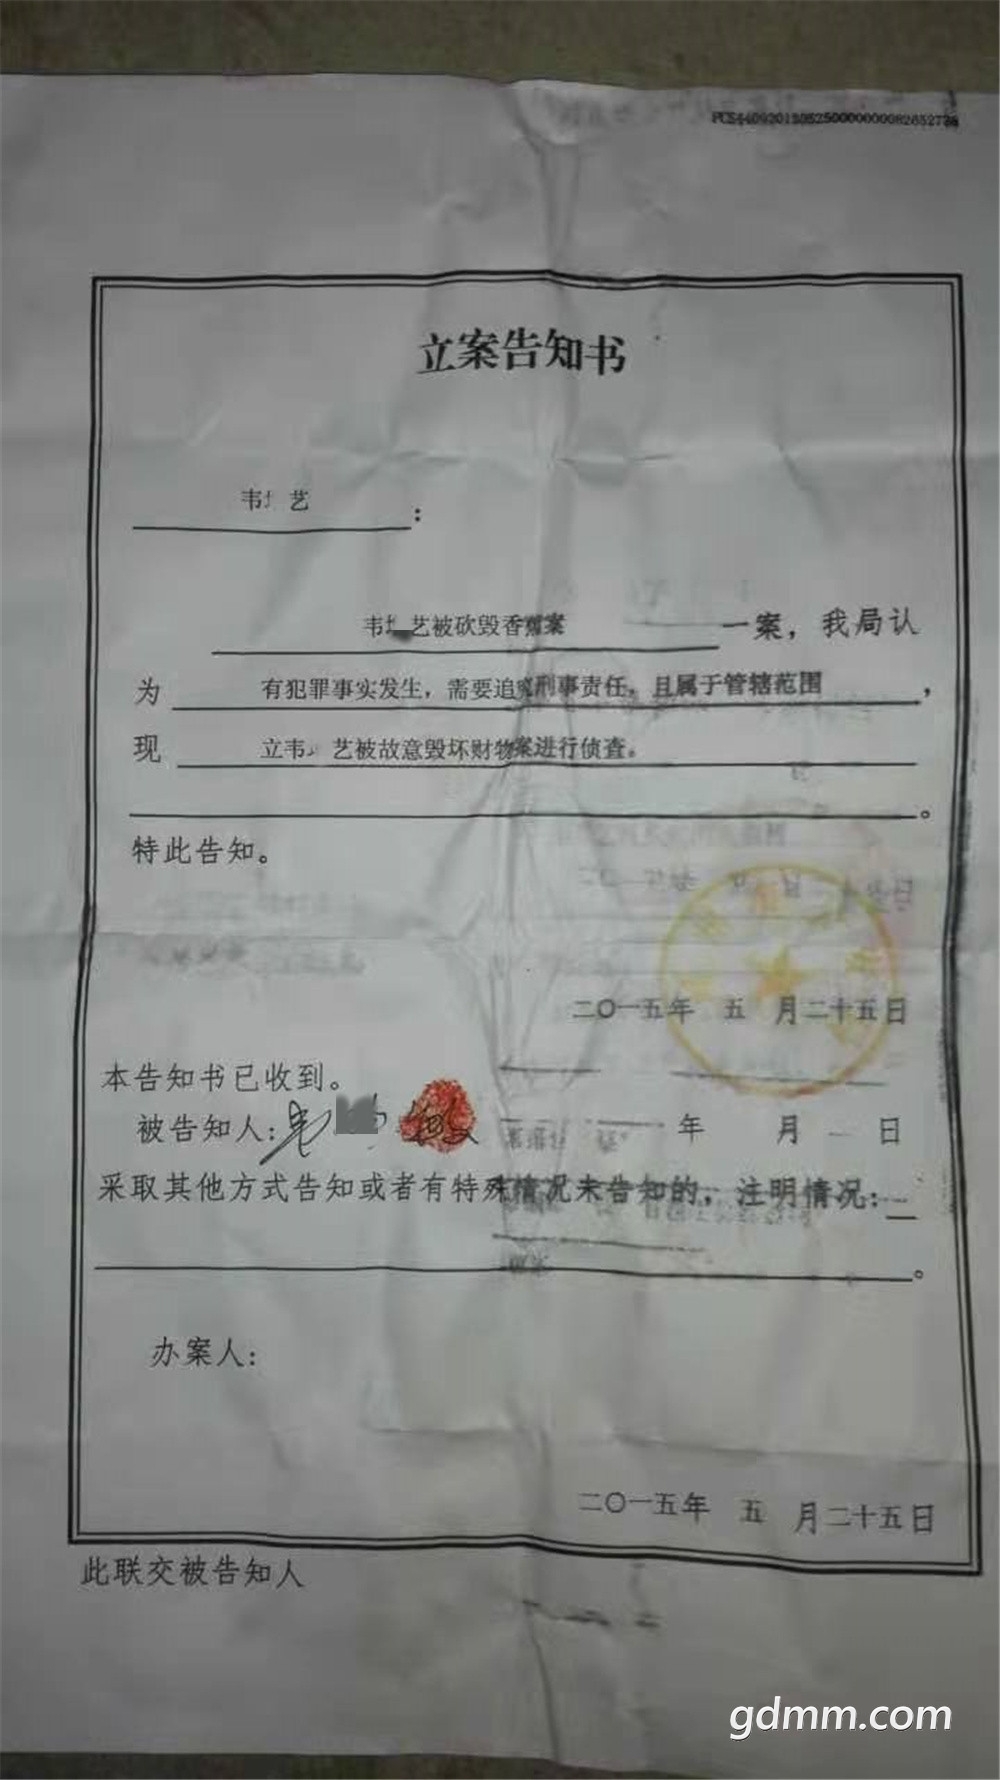 立案告知书
韦 艺:
韦 艺被砍毁香蕉案 一案，我局认
为 有犯罪事实发生，需要追究刑事责任，且属于管辖范围，
现 立韦 艺被故意毁坏财物案进行侦查。
。
特此告知。
二〇一五年 五 月二十五日
本告知书已收到。
被告知人: 年 月 日
采取其他方式告知或者有特殊情况未告知的，注明情况:
。
办案人:
二〇一五年 五 月二十五日
此联交被告知人
gdmm.com